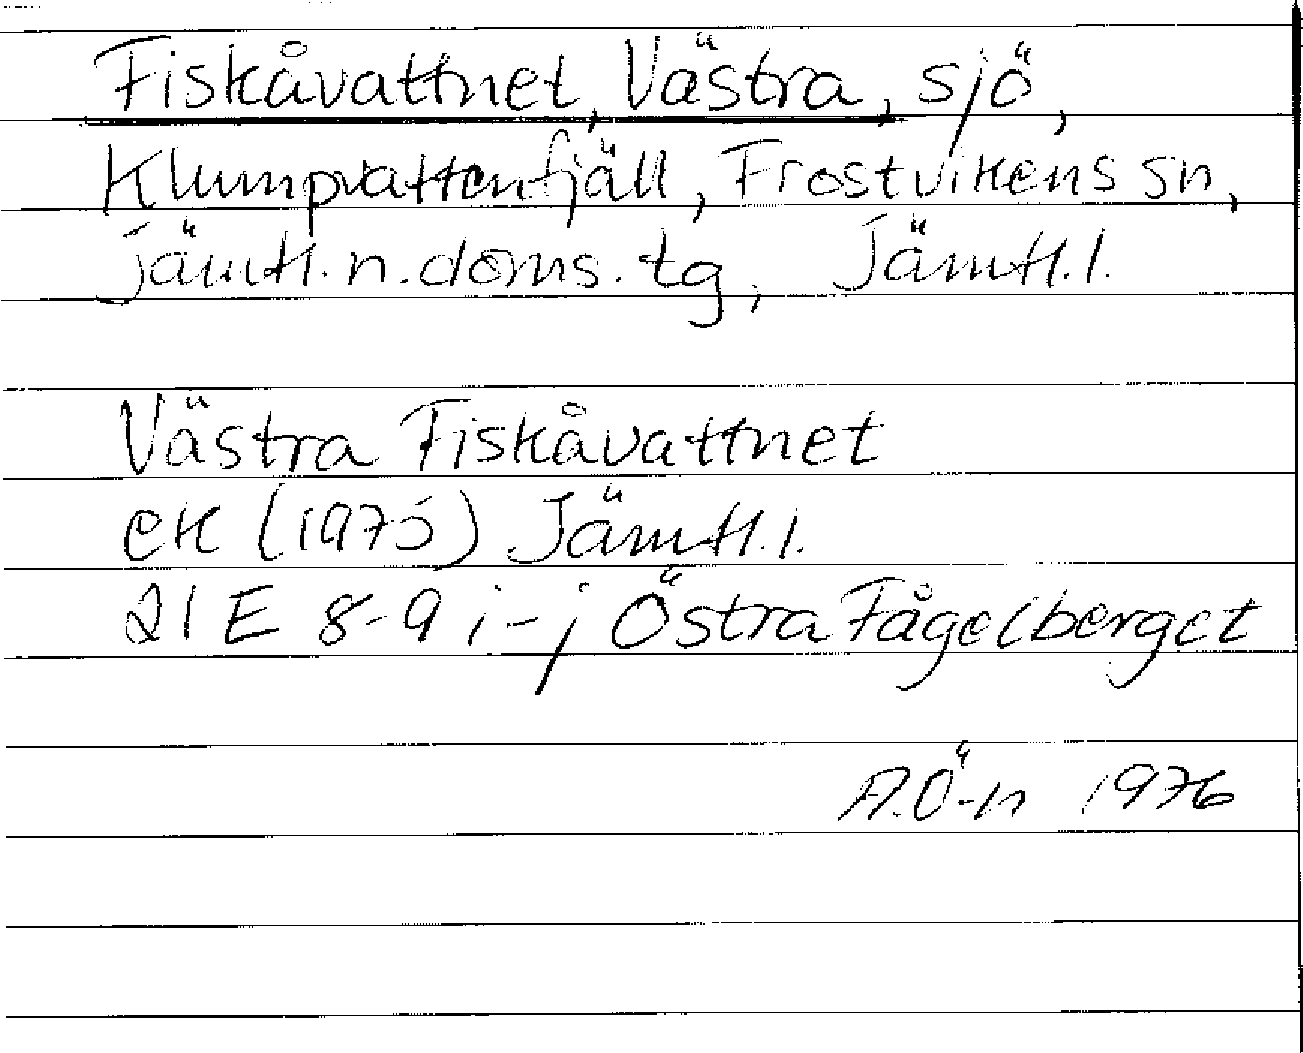 Fiskåvattnet, Västra, sjö,
Klumpvattenfjäll, Frostvikens sn,
Jämtl. n. doms. tg, Jämtl. l.
Västra Fiskåvattnet
ek (1975) Jämtl. l.
21 E 8-9 i-j Östra Fågelberget
A.Ö-n 1976